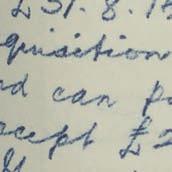 £31.8.18
quisition
nd can p
ccept £2